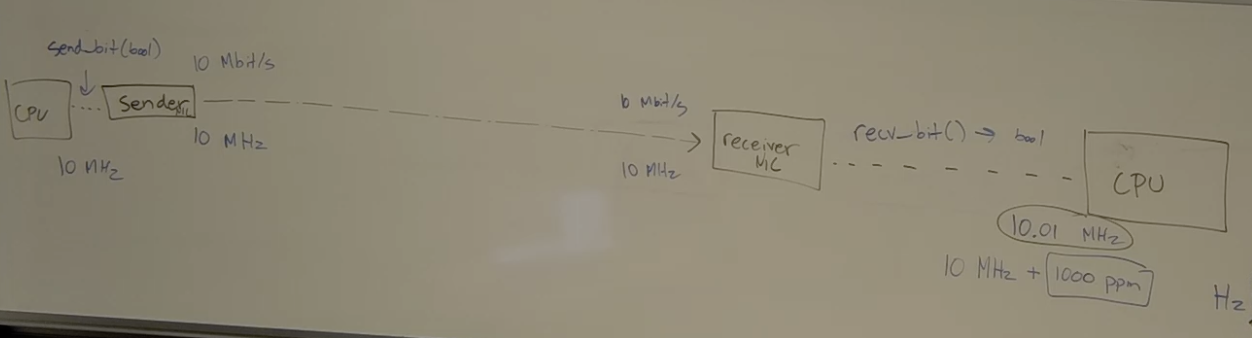 send_bit(bool)
10 Mbit/s
CPU
Sender
10 MHz
10 MHz
10 Mbit/s
10 MHz
receiver
NIC
recv_bit() → bool
CPU
10.01 MHz
10 MHz + 1000 ppm
Hz